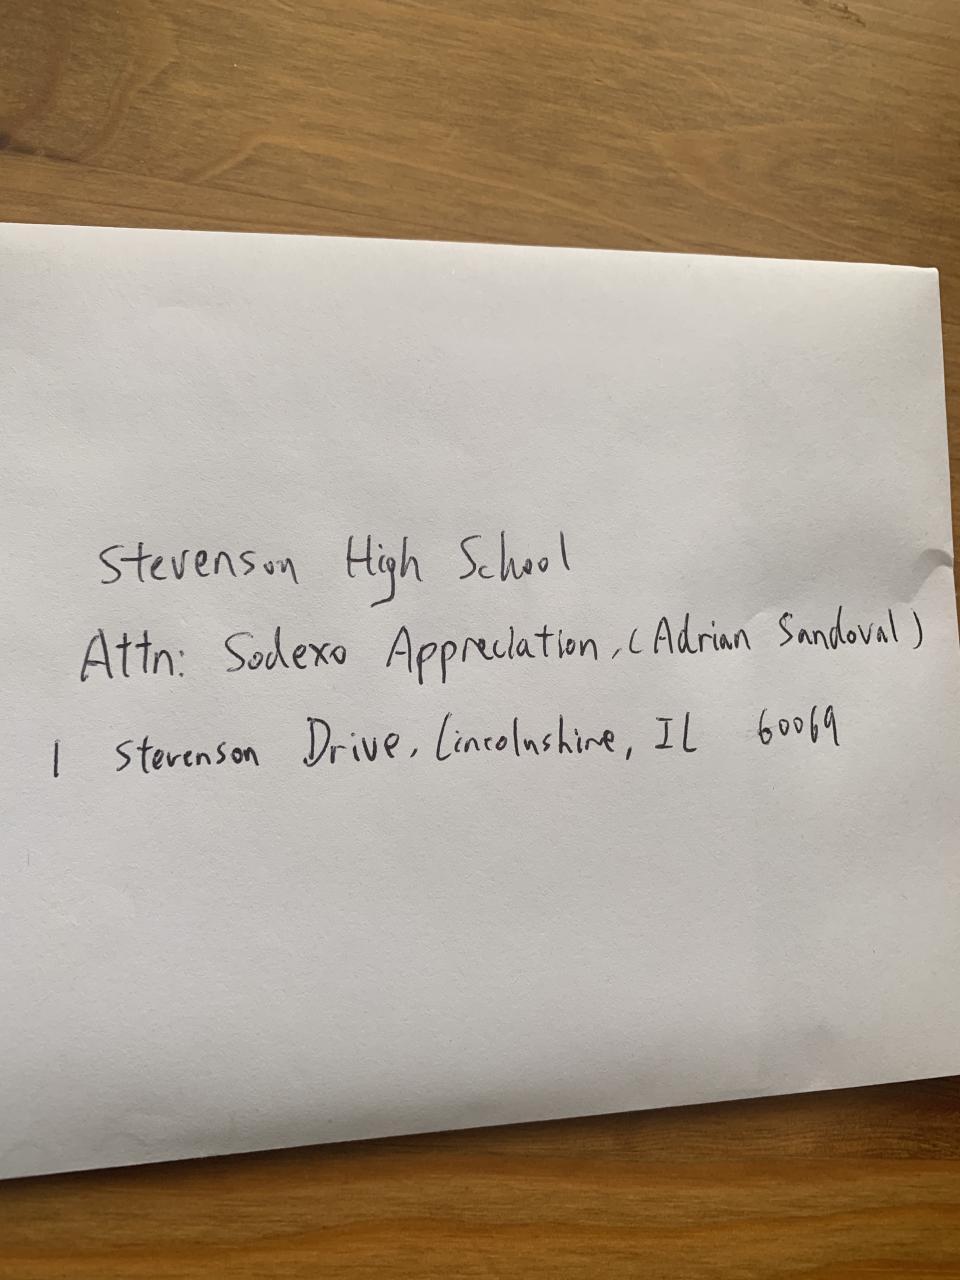 Stevenson High School
Attn: Sodexo Appreciation, (Adrian Sandoval)
1 Stevenson Drive, Lincolnshire, IL 60069